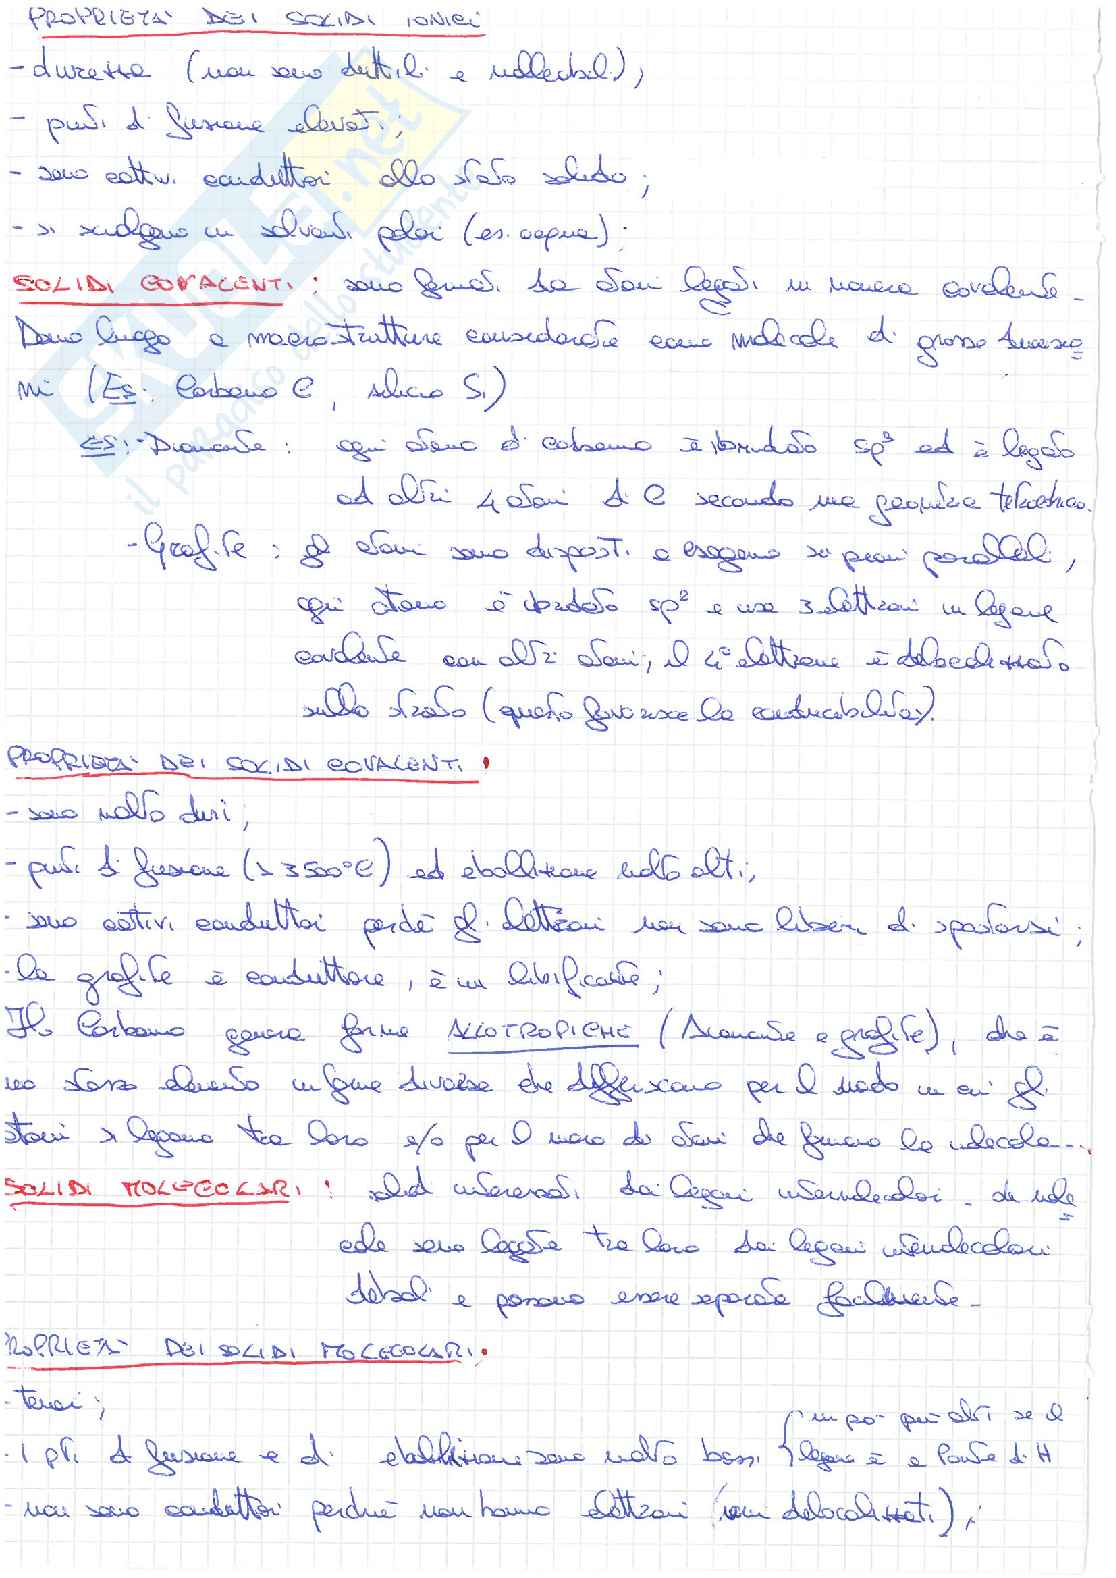 PROPRIETÀ DEI SOLIDI IONICI
- durezza (non sono duttili e malleabili);
- punti di fusione elevati;
- sono cattivi conduttori allo stato solido;
- si sciolgono in solventi polari (es. acqua);
SOLIDI COVALENTI: sono formati da atomi legati in maniera covalente.
Danno luogo a macrostrutture considerate come molecole di grosse dimensio=
ni (Es: Carbonio C, silicio Si)
ES: - Diamante: ogni atomo di carbonio è ibridato sp³ ed è legato
ad altri 4 atomi di C secondo una geometria tetraedrica.
- Grafite: gli atomi sono disposti a esagono su piani paralleli,
ogni atomo è ibridato sp² e usa 3 elettroni in legame
covalente con altri atomi, il 4° elettrone è delocalizzato
sullo strato (questo favorisce la conducibilità).
PROPRIETÀ DEI SOLIDI COVALENTI.
- sono molto duri;
- punti di fusione (> 3500°C) ed ebollizione molto alti;
- sono cattivi conduttori perché gli elettroni non sono liberi di spostarsi;
- la grafite è conduttore, è un lubrificante;
Il Carbonio genera forme ALLOTROPICHE (Diamante e grafite), che è
uno stesso elemento in forme diverse che differiscono per il modo in cui gli
atomi si legano tra loro e/o per il numero di atomi che formano la molecola...
SOLIDI MOLECOLARI: solidi interessati dai legami intermolecolari. Le mole=
cole sono legate tra loro dai legami intermolecolari
deboli e possono essere separate facilmente.
PROPRIETÀ DEI SOLIDI MOLECOLARI.
- teneri;
- I pti di fusione e di ebollizione sono molto bassi { un po' più alti se il
legame è a Ponte di H
- non sono conduttori perché non hanno elettroni (ioni delocalizzati);
SKUOLA.net
il paradiso dello studente